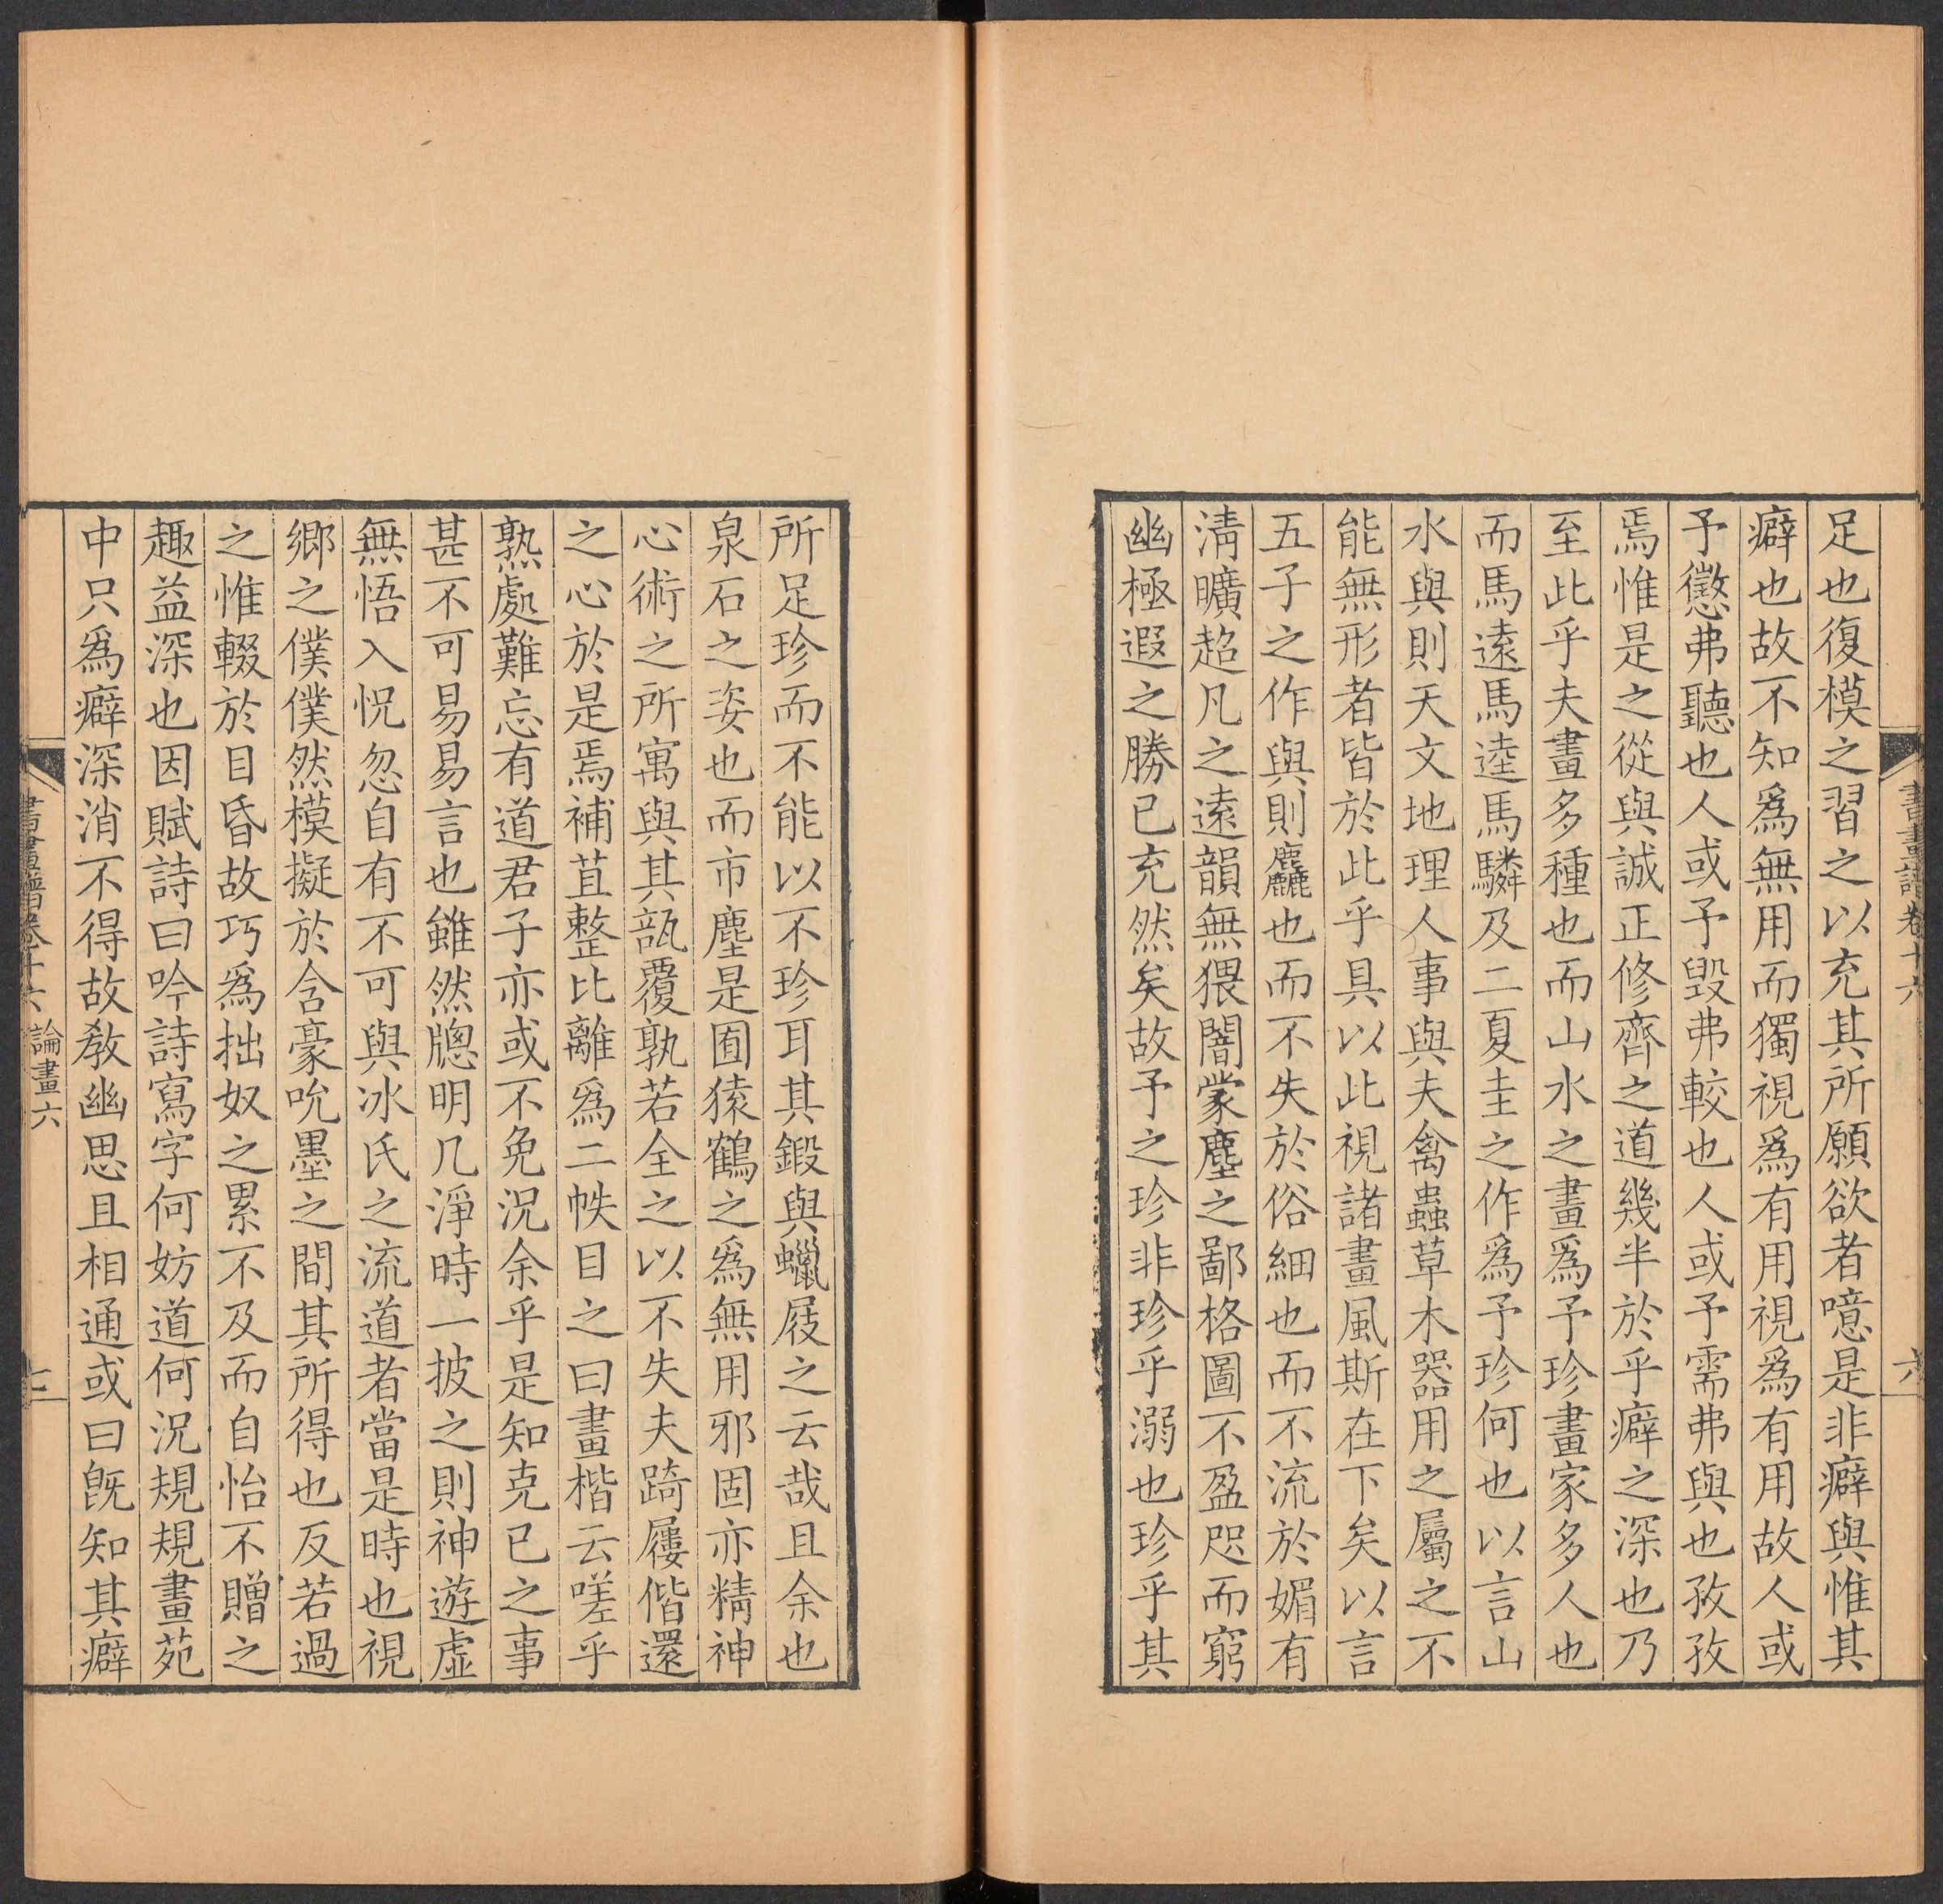 足也復模之習之以充其所願欲者噫是非癖與惟其
癖也故不知爲無用而獨視爲有用視爲有用故人或
予懲弗聽也人或予毀弗較也人或予需弗與也孜孜
焉惟是之從與誠正修齊之道幾半於乎癖之深也乃
至此乎夫畫多種也而山水之畫爲予珍畫家多人也
而馬遠馬逵馬驎及二夏圭之作爲予珍何也以言山
水與則天文地理人事與夫禽蟲草木器用之屬之不
能無形者皆於此乎具以此視諸畫風斯在下矣以言
五子之作與則麤也而不失於俗細也而不流於媚有
淸曠超凡之遠韻無猥闇蒙塵之鄙格圖不盈咫而窮
幽極遐之勝已充然矣故予之珍非珍乎溺也珍乎其
所足珍而不能以不珍耳其鍛與蠟屐之云哉且余也
泉石之姿也而市塵是囿猿鶴之爲無用邪固亦精神
心術之所寓與其瓿覆孰若全之以不失夫踦屨偕還
之心於是焉補苴整比離爲二帙目之曰畫楷云嗟乎
熟處難忘有道君子亦或不免況余乎是知克已之事
甚不可易易言也雖然牕明几淨時一披之則神遊虛
無悟入怳忽自有不可與冰氏之流道者當是時也視
鄉之僕僕然模擬於含豪吮墨之間其所得也反若過
之惟輟於目昏故巧爲拙奴之累不及而自怡不贈之
趣益深也因賦詩曰吟詩寫字何妨道何況規規畫苑
中只爲癖深消不得故敎幽思且相通或曰旣知其癖
書畫譜卷十六
六
論畫六